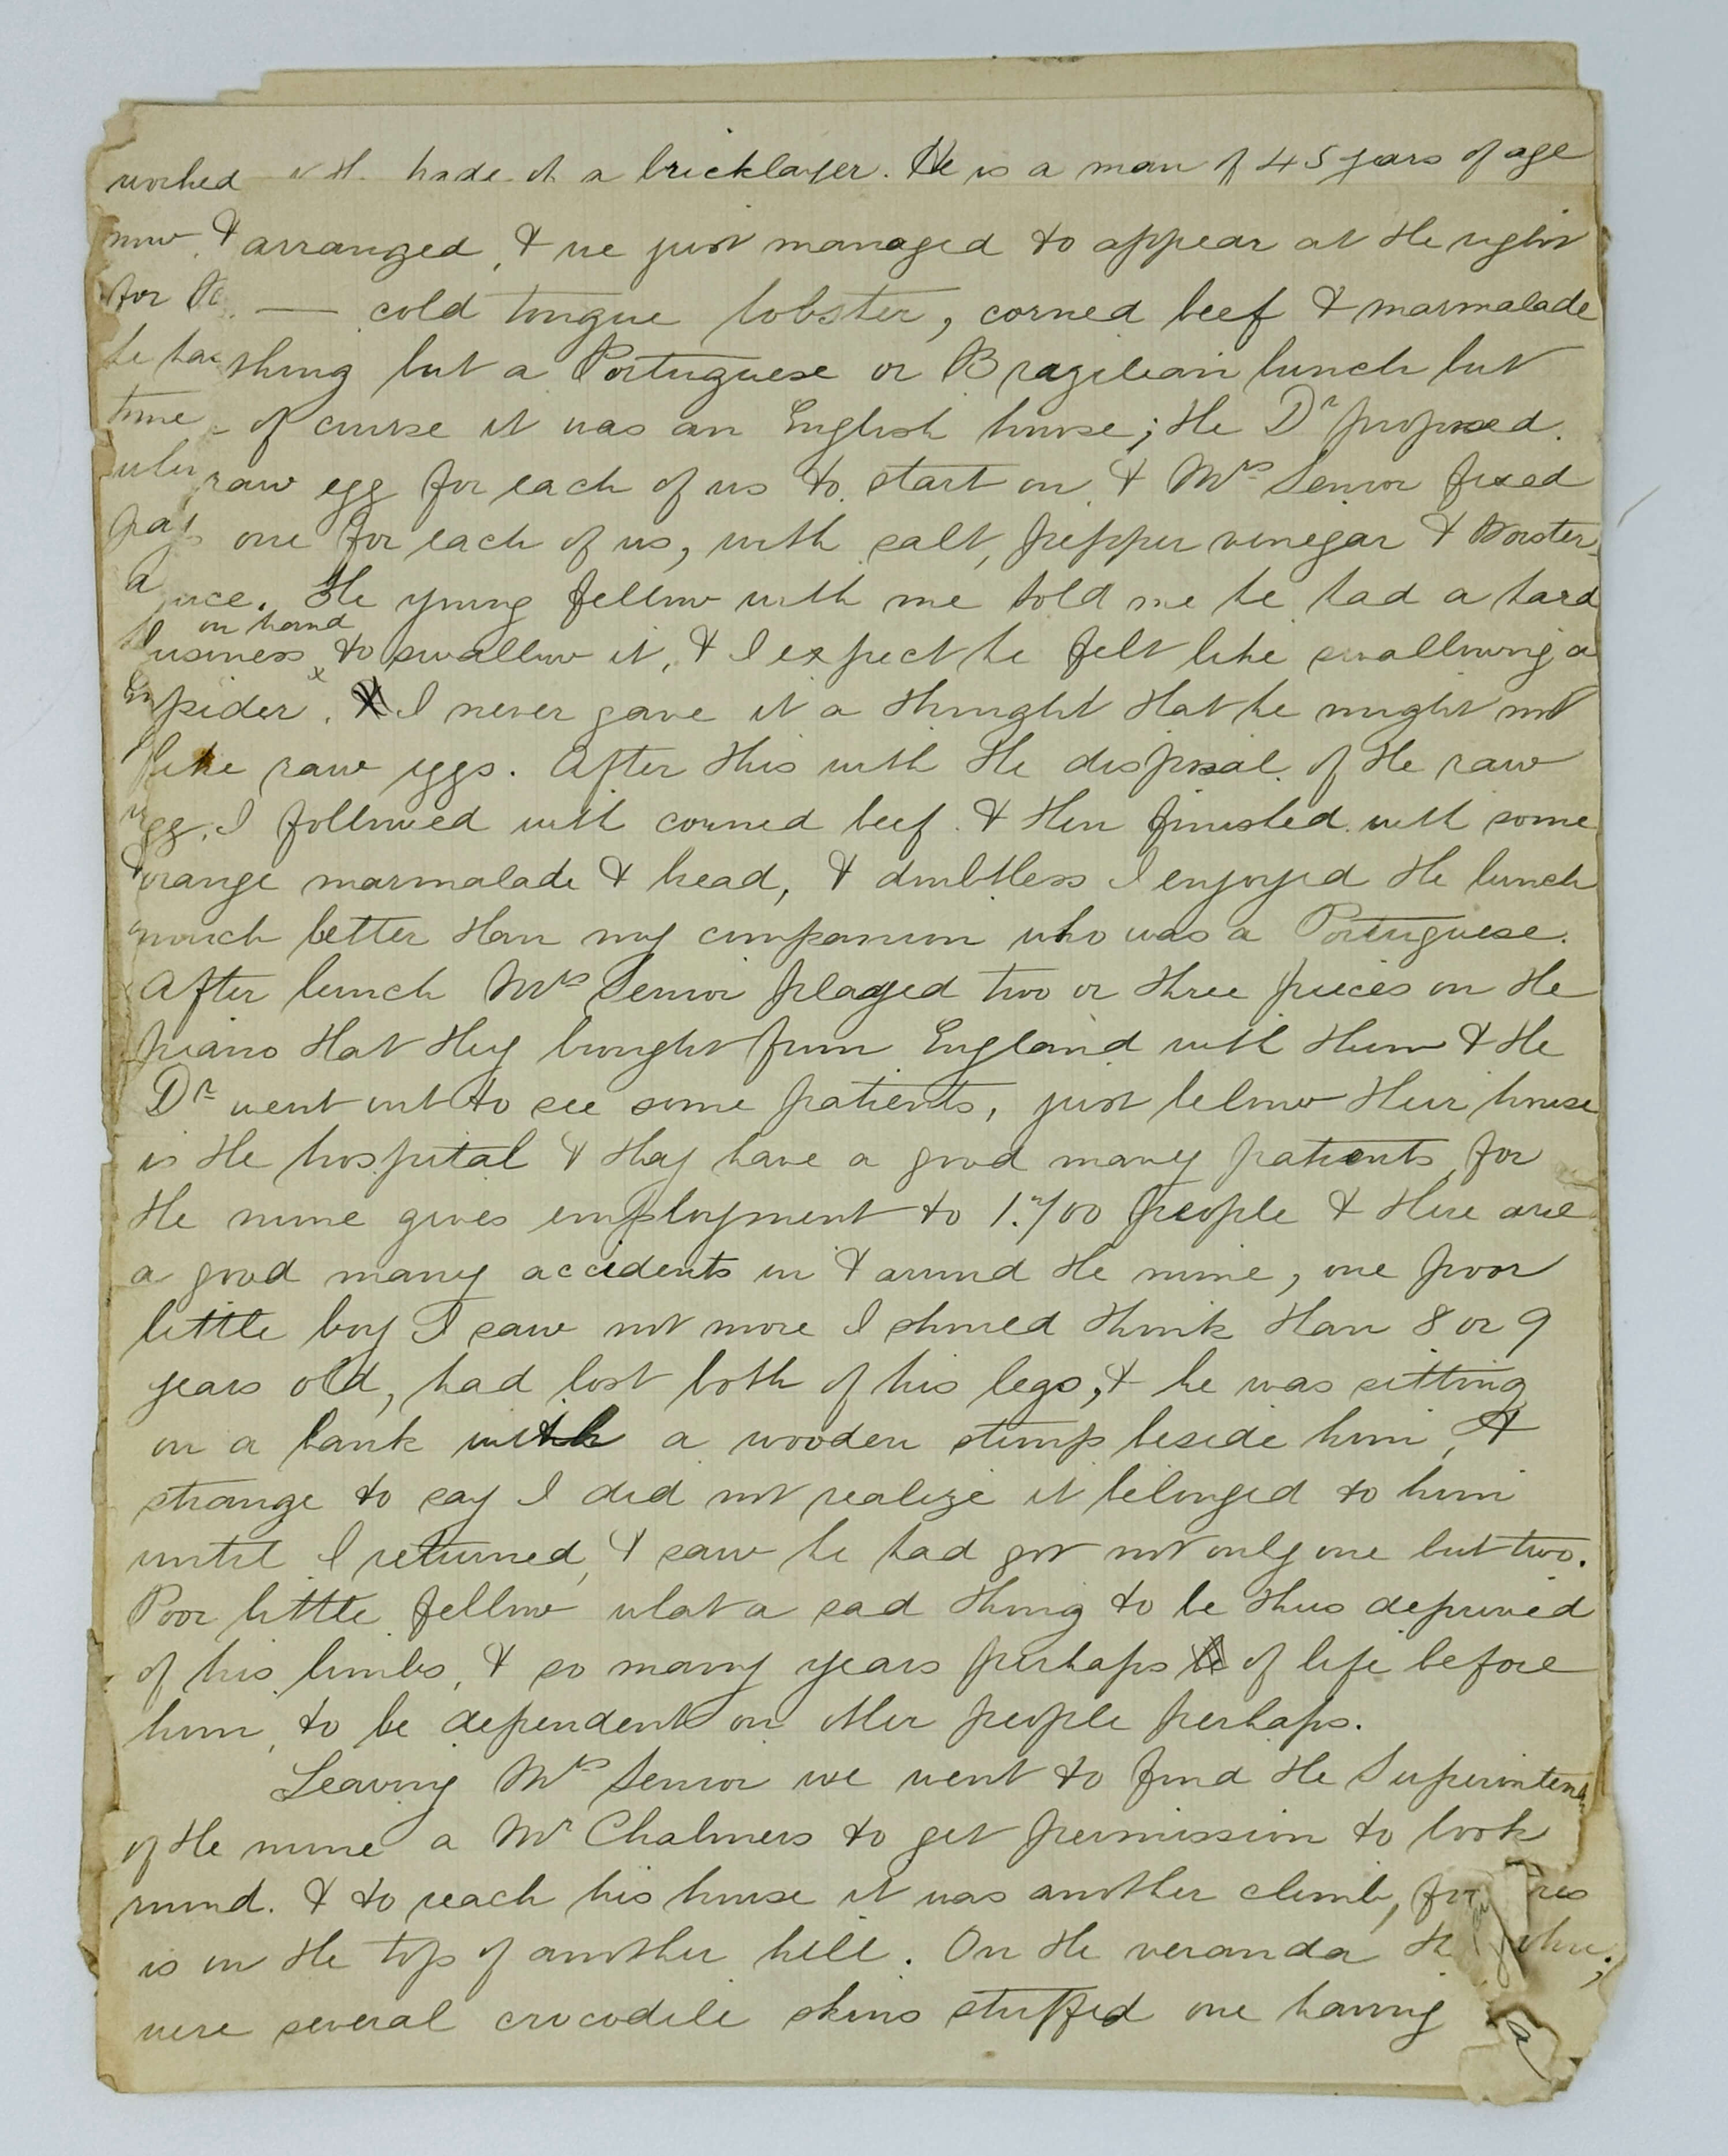 worked trade of a bricklayer. He is a man of 45 years of age
now & arranged, & we just managed to appear at the right
for — cold tongue lobster, corned beef & marmalade
he thing but a Portuguese or Brazilian lunch but
time of course it was an English house; the Dr proposed.
raw egg for each of us to start on & Mrs Senior fixed
one for each of us, with salt, pepper vinegar & Worster
a uce. The young fellow with me told me he had a hard
on hand
usiness x to swallow it, & I expect he felt like swallowing a
spider. I never gave it a thought that he might not
like raw eggs. After this with the disposal of the raw
egg, I followed with corned beef & then finished with some
orange marmalade & bread, & doubtless I enjoyed the lunch
much better than my companion who was a Portuguese.
After lunch Mrs Senior played two or three pieces on the
piano that they brought from England with them & the
Dr went out to see some patients, just below their house
is the hospital & they have a good many patients for
the mine gives employment to 1.700 people & there are
a good many accidents in & around the mine, one poor
little boy I saw not more I should think than 8 or 9
years old, had lost both of his legs, & he was sitting
on a bank with a wooden stump beside him, &
strange to say I did not realize it belonged to him
until I returned, & saw he had got not only one but two.
Poor little fellow what a sad thing to be thus deprived
of his limbs, & so many years perhaps of life before
him, to be dependent on other people perhaps.
Leaving Mrs Senior we went to find the Superintend
of the mine a Mr Chalmers to get permission to look
round. & to reach his house it was another climb, for
is on the top of another hill. On the veranda
were several crocodile skins stuffed one having a